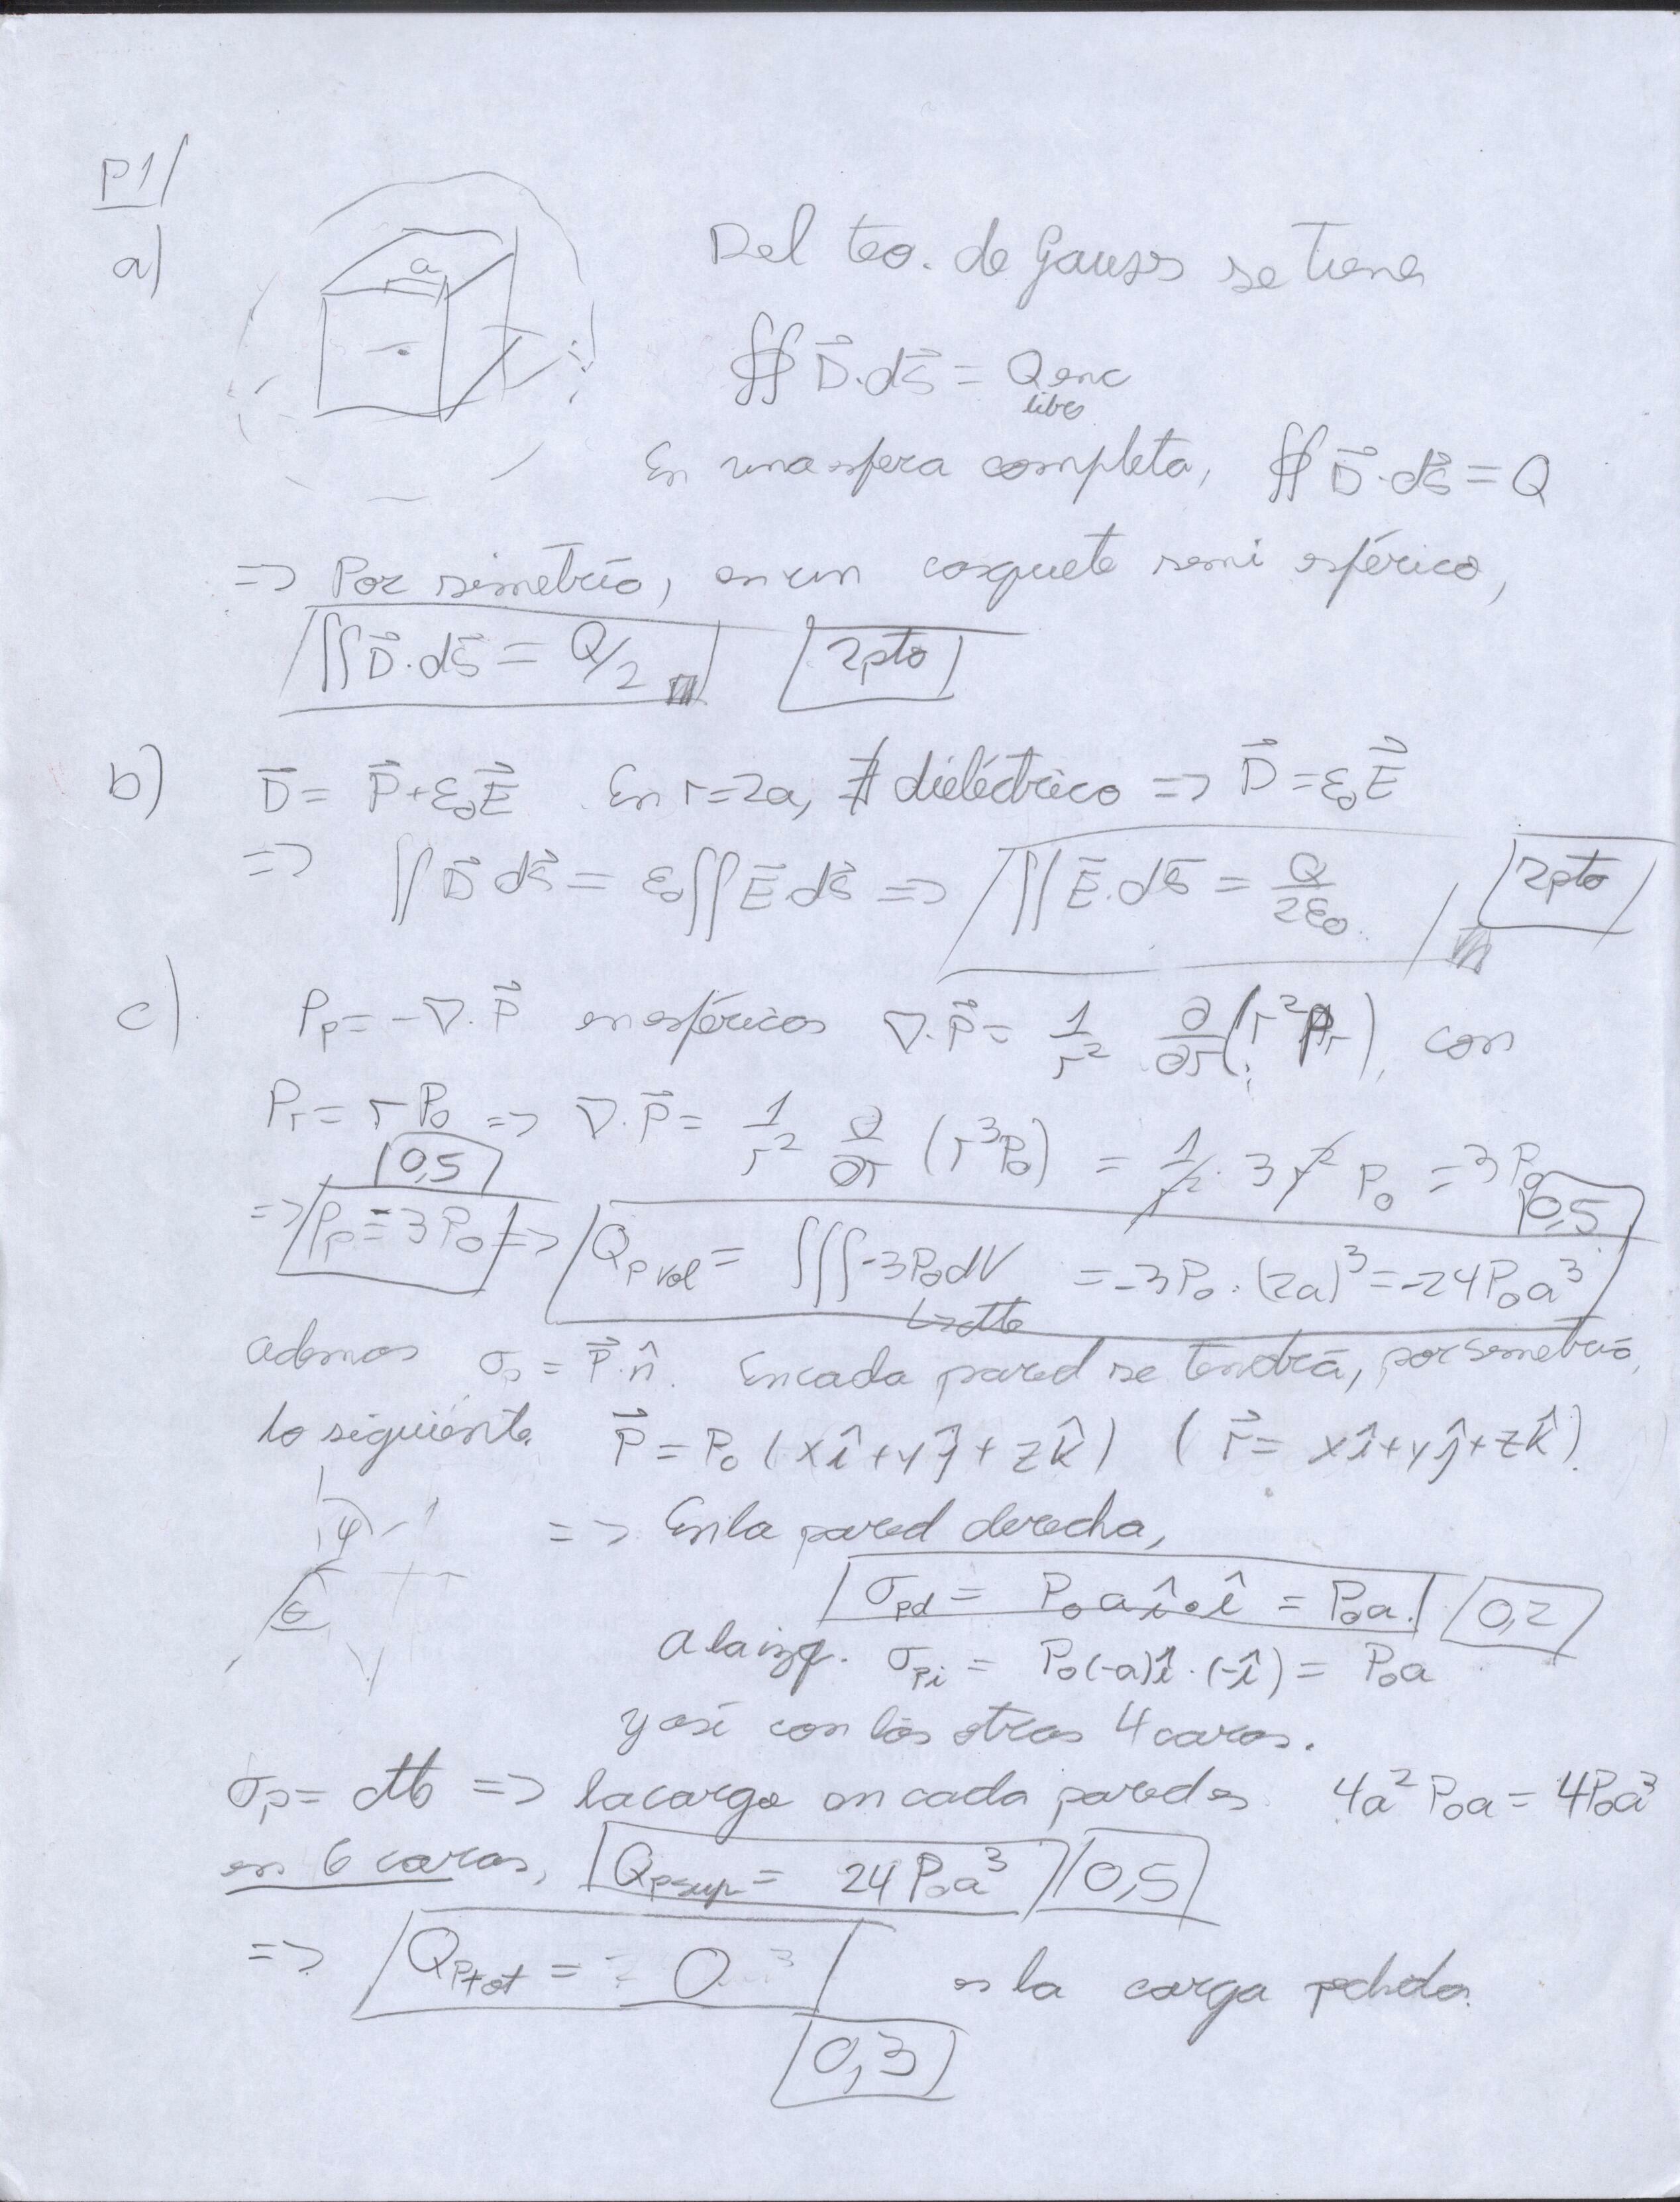 P1/
a)
a
Del teo. de Gauss se tiene
∯ D⃗·dS⃗ = Qenc
libre
En una esfera completa, ∯ D⃗·dS⃗ = Q
=> Por simetría, en un casquete semi esférico,
∬ D⃗·dS⃗ = Q/2 2pto
b) D⃗ = P⃗ + ε₀E⃗ En r=2a, ∄ dieléctrico => D⃗ = ε₀E⃗
=> ∬ D⃗ dS⃗ = ε₀∬ E⃗·dS⃗ => ∬ E⃗·dS⃗ = Q/2ε₀ 2pto
c) ρp = -∇·P⃗ en esféricas ∇·P⃗ = 1/r² ∂/∂r (r²Pr), con
Pr = r P₀ => ∇·P⃗ = 1/r² ∂/∂r (r³P₀) = 1/r² · 3 r² P₀ = 3P₀
0,5
=> ρp = -3P₀ => Qp vol = ∭ -3P₀dV = -3P₀·(2a)³ = -24P₀a³ 0,5
↳ctte
ademas σp = P⃗·n̂. En cada pared se tendrá, por simetría,
lo siguiente P⃗ = P₀ (xî+yĵ+zk̂) (r⃗ = xî+yĵ+zk̂)
=> En la pared derecha,
σpd = P₀ a î·î = P₀a. 0,2
a la izq. σpi = P₀(-a)î·(-î) = P₀a
y asi con las otras 4 caras.
σp = ctte => la carga en cada pared es 4a² P₀a = 4P₀a³
en 6 caras, Qpsup = 24 P₀a³ 0,5
=> Qptot = 0 es la carga pedida.
0,3